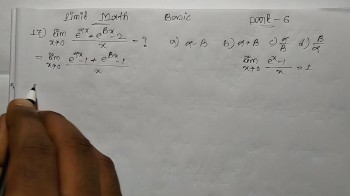 Limit Math Basic part-6
17) lim x→0 (e^αx + e^βx - 2)/x = ? a) α-β b) α+β c) α/β d) β/α
= lim x→0 (e^αx - 1 + e^βx - 1)/x lim x→0 (e^x - 1)/x = 1